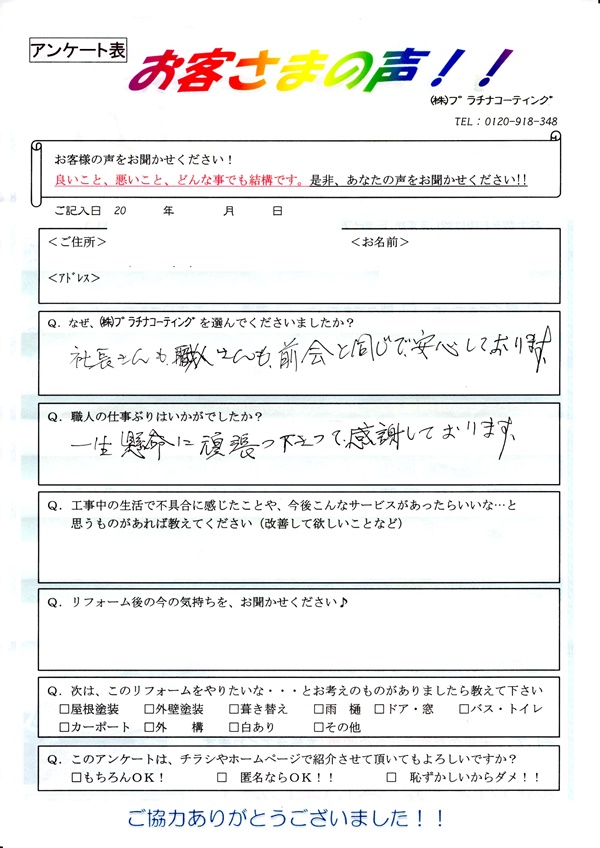 アンケート表
お客さまの声！！
㈱ﾌﾟﾗﾁﾅｺｰﾃｨﾝｸﾞ
TEL：0120-918-348
お客様の声をお聞かせください！
良いこと、悪いこと、どんな事でも結構です。是非、あなたの声をお聞かせください!!
ご記入日 20 年 月 日
＜ご住所＞ ＜お名前＞
＜ｱﾄﾞﾚｽ＞
Q．なぜ、㈱ﾌﾟﾗﾁﾅｺｰﾃｨﾝｸﾞを選んでくださいましたか？
社長さんも、職人さんも、前会と同じで、安心しております。
Q．職人の仕事ぶりはいかがでしたか？
一生懸命に頑張って下さって、感謝しております。
Q．工事中の生活で不具合に感じたことや、今後こんなサービスがあったらいいな…と
思うものがあれば教えてください（改善して欲しいことなど）
Q．リフォーム後の今の気持ちを、お聞かせください♪
Q．次は、このリフォームをやりたいな・・・とお考えのものがありましたら教えて下さい
□屋根塗装 □外壁塗装 □葺き替え □雨 樋 □ドア・窓 □バス・トイレ
□カーポート □外 構 □白あり □その他
Q．このアンケートは、チラシやホームページで紹介させて頂いてもよろしいですか？
□もちろんOK！ □ 匿名ならOK！！ □ 恥ずかしいからダメ！！
ご協力ありがとうございました！！